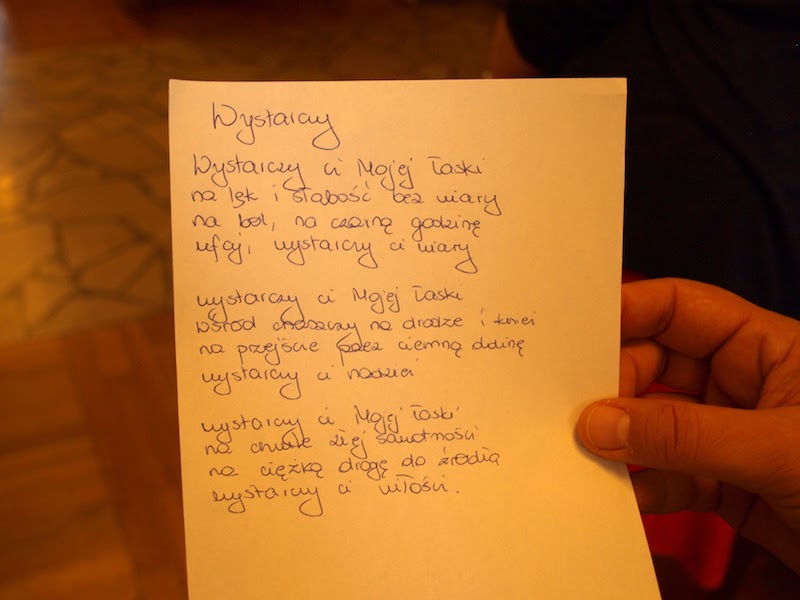 Wystarczy
Wystarczy ci Mojej Łaski
na lęk i słabość bez wiary
na ból, na czarną godzinę
ufaj, wystarczy ci wiary
wystarczy ci Mojej Łaski
wśród chaszczy na drodze i kniei
na przejście przez ciemną dolinę
wystarczy ci nadziei
wystarczy ci Mojej Łaski
na chwile złej samotności
na ciężką drogę do źródła
wystarczy ci miłości.